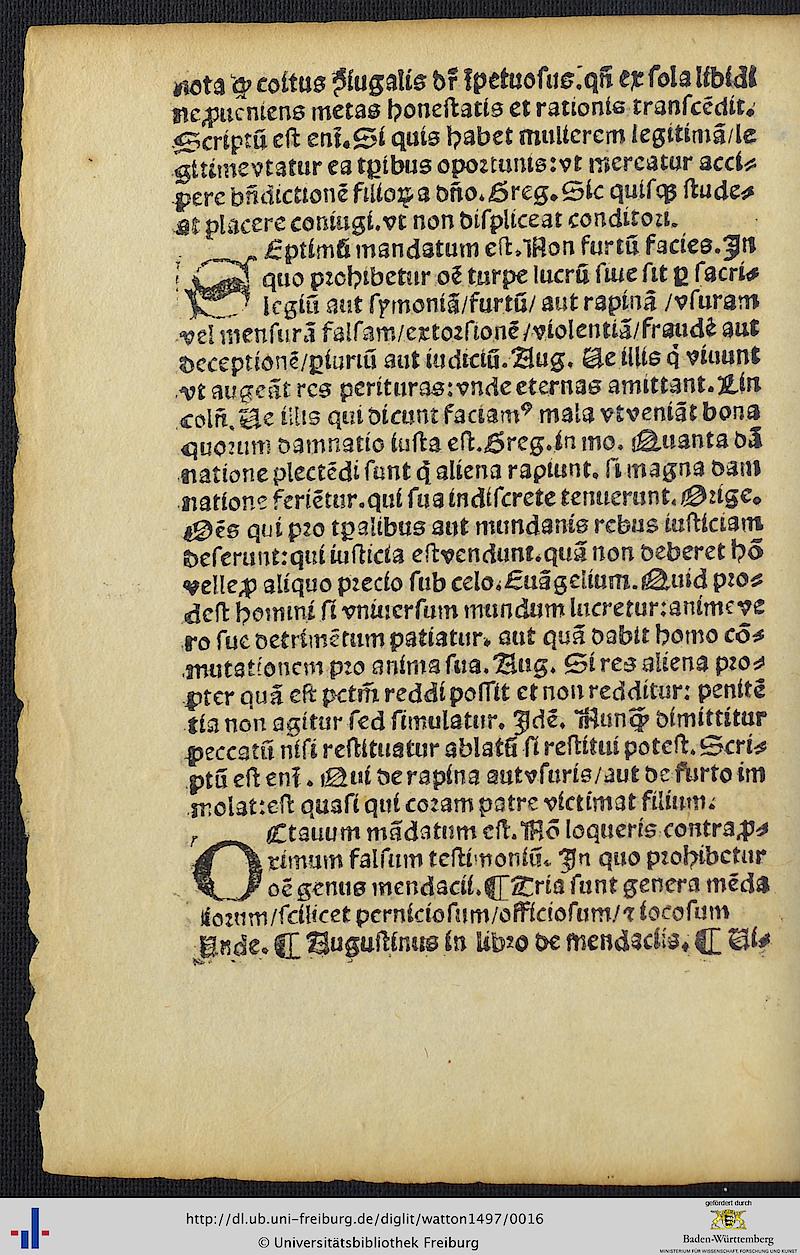 nota ꝙ coitus ꝯiugalis dr̃ īpetuosus.qñ ex sola libidi
ne ꝓueniens metas honestatis et rationis transcēdit.
Scriptū est eni̅.Si quis habet mulierem legitimā/le
gitime vtatur ea tꝑibus oportunis:vt mereatur acci⸗
pere bñdictionē filioꝝ a dño.Greg.Sic quisqꝫ stude⸗
at placere coniugi.vt non displiceat conditori.
SEptimū mandatum est.Non furtū facies.In
quo prohibetur oē turpe lucrū siue sit ꝑ sacri⸗
legiū aut symoniā/furtū/ aut rapinā /vsuram
vel mensurā falsam/extorsionē/violentiā/fraudē aut
deceptionē/ꝑiuriū aut iudiciū.Aug. Ve illis q̇ viuunt
vt augeāt res perituras:vnde eternas amittant.Lin
colñ.Ve illis qui dicunt faciamꝰ mala vt veniāt bona
quorum damnatio iusta est.Greg.in mo. Quanta dā
natione plectēdi sunt q̇ aliena rapiunt. si magna dam
natione feriētur.qui sua indiscrete tenuerunt.Orige.
Oēs qui pro tꝑalibus aut mundanis rebus iusticiam
deserunt:qui iusticia est vendunt.quā non deberet hō
velle ꝓ aliquo precio sub celo.Euāgelium.Quid pro⸗
dest homini si vniuersum mundum lucretur:anime ve
ro sue detrimētum patiatur. aut quā dabit homo cō⸗
mutationem pro anima sua.Aug. Si res aliena pro⸗
pter quā est pctm̄ reddi possit et non redditur: penitē
tia non agitur sed simulatur. Idē. Nunqꝫ dimittitur
peccatū nisi restituatur ablatū si restitui potest.Scri⸗
ptū est eni̅. Qui de rapina aut vsuris/aut de furto im
molat:est quasi qui coram patre victimat filium.
OCtauum mādatum est.Nō loqueris contra ꝓ⸗
ximum falsum testimoniū. In quo prohibetur
oē genus mendacii.¶ Tria sunt genera mēda
ciorum/scilicet perniciosum/officiosum/⁊ iocosum
Vnde. ¶ Augustinus in libro de mendaciis. ¶ Vi⸗
http://dl.ub.uni-freiburg.de/diglit/watton1497/0016
© Universitätsbibliothek Freiburg
gefördert durch
Baden-Württemberg
MINISTERIUM FÜR WISSENSCHAFT, FORSCHUNG UND KUNST